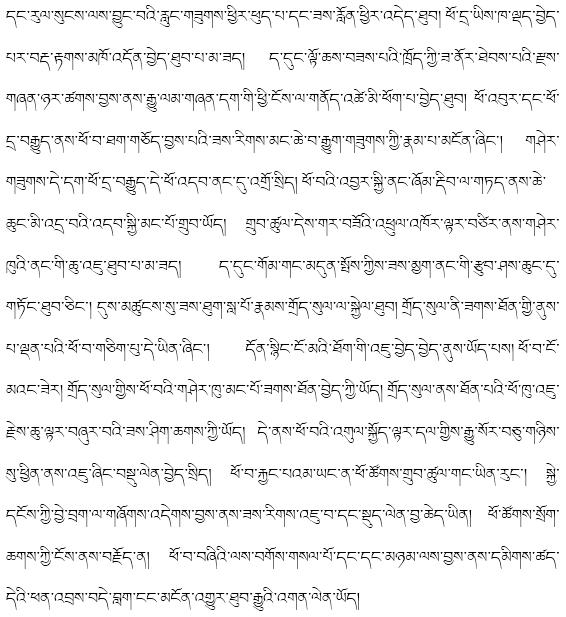 དང་རུལ་སུངས་ལས་བྱུང་བའི་རླུང་གཟུགས་ཕྱིར་ཕུད་པ་དང་ཟས་རློན་ཕྱིར་འདེད་ཐུབ། ཕོ་དྲ་ཡིས་ཁ་ལྡད་བྱེད་
པར་བརྡ་རྟགས་མཁོ་འདོན་བྱེད་ཐུབ་པ་མ་ཟད། ད་དུང་ལྟོ་ཆས་བཟས་པའི་ཁྲོད་ཀྱི་ཟ་ནོར་ཐེབས་པའི་རྫས་
གཞན་ཉར་ཚགས་བྱས་ནས་རྒྱུ་ལམ་གཞན་དག་གི་ཕྱི་ངོས་ལ་གནོད་འཚེ་མི་ཕོག་པ་བྱེད་ཐུབ། ཕོ་འབུར་དང་ཕོ་
དྲ་བརྒྱུད་ནས་ཕོ་བ་ཐག་གཅོད་བྱས་པའི་ཟས་རིགས་མང་ཆེ་བ་རྒྱུག་གཟུགས་ཀྱི་རྣམ་པ་མངོན་ཞིང་། གཤེར་
གཟུགས་དེ་དག་ཕོ་དྲ་བརྒྱུད་དེ་ཕོ་འདབ་ནང་དུ་འགྲོ་སྲིད། ཕོ་བའི་འབྱར་སྐྱི་ནང་ཞོམ་རྡིབ་ལ་གཏད་ནས་ཆེ་
ཆུང་མི་འདྲ་བའི་འདབ་སྐྱི་མང་པོ་གྲུབ་ཡོད། གྲུབ་ཚུལ་དེས་གར་བཟོའི་འཕྲུལ་འཁོར་ལྟར་བཙིར་ནས་གཤེར་
ཁུའི་ནང་གི་ཆུ་འཇུ་ཐུབ་པ་མ་ཟད། ད་དུང་གོམ་གང་མདུན་སྤོས་ཀྱིས་ཟས་མྱག་ནང་གི་རྩུབ་ཤས་ཆུང་དུ་
གཏོང་ཐུབ་ཅིང་། དུས་མཚུངས་སུ་ཟས་ཐུག་སླ་པོ་རྣམས་གྲོད་སུལ་ལ་སྐྱེལ་ཐུབ། གྲོད་སུལ་ནི་ཟགས་ཐོན་གྱི་ནུས་
པ་ལྡན་པའི་ཕོ་བ་གཅིག་པུ་དེ་ཡིན་ཞིང་། དོན་སྙིང་ངོ་མའི་ཐོག་གི་འཇུ་བྱེད་བྱེད་ནུས་ཡོད་པས། ཕོ་བ་ངོ་
མའང་ཟེར། གྲོད་སུལ་གྱིས་ཕོ་བའི་གཤེར་ཁུ་མང་པོ་ཟགས་ཐོན་བྱེད་ཀྱི་ཡོད། གྲོད་སུལ་ནས་ཐོན་པའི་ཕོ་ཁུ་འཇུ་
རྗེས་ཆུ་ལྟར་བཞུར་བའི་ཟས་ཤིག་ཆགས་ཀྱི་ཡོད། དེ་ནས་ཕོ་བའི་འགུལ་སྐྱོད་ལྟར་དལ་གྱིས་རྒྱུ་སོར་བཅུ་གཉིས་
སུ་ཕྱིན་ནས་འཇུ་ཞིང་བསྡུ་ལེན་བྱེད་སྲིད། ཕོ་བ་རྐྱང་པའམ་ཡང་ན་ཕོ་ཚོགས་གྲུབ་ཚུལ་གང་ཡིན་རུང་། སྐྱེ་
དངོས་ཀྱི་བྱེ་བྲག་ལ་གཞོགས་འདེགས་བྱས་ནས་ཟས་རིགས་འཇུ་བ་དང་སྡུད་ལེན་བྱ་ཆེད་ཡིན། ཕོ་ཚོགས་སྲོག་
ཆགས་ཀྱི་ངོས་ནས་བརྗོད་ན། ཕོ་བ་བཞིའི་ལས་བགོས་གསལ་པོ་དང་དང་མཉམ་ལས་བྱས་ནས་དམིགས་ཚད་
དེའི་ཕན་འབྲས་བདེ་བླག་ངང་མངོན་འགྱུར་ཐུབ་རྒྱུའི་འགན་ལེན་ཡོད།